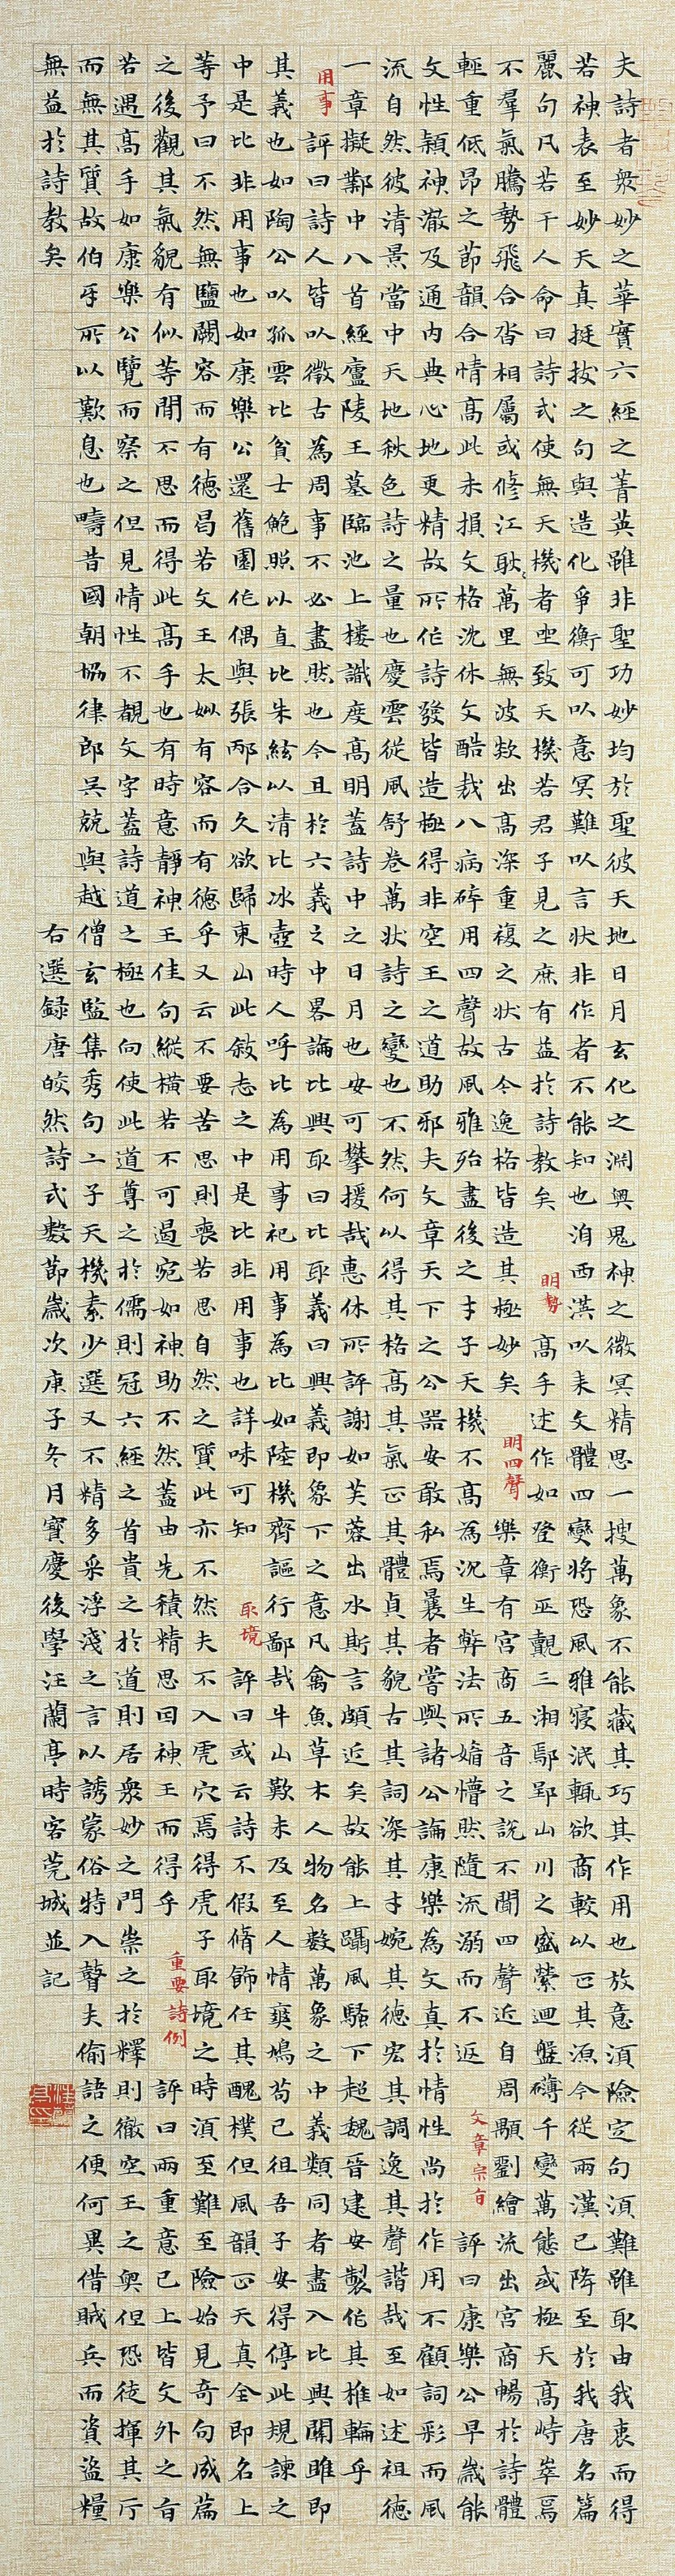 夫詩者衆妙之華實六經之菁英雖非聖功妙均於聖彼天地日月玄化之淵奥鬼神之微冥精思一搜萬象不能藏其巧其作用也放意湏險定句湏難雖取由我衷而得
若神表至妙天真挺拔之句與造化爭衡可以意冥難以言狀非作者不能知也洎西漢以来文體四變將恐風雅寖泯輒欲商較以正其源今從兩漢已降至於我唐名篇
麗句凡若干人命曰詩式使無天機者坐致天機若君子見之庶有益於詩教矣 明勢 高手述作如登衡巫覿三湘鄢郢山川之盛縈迴盤礴千變萬態或極天高峙崒焉
不羣氣騰勢飛合沓相屬或修江耿々萬里無波欻出高深重複之狀古今逸格皆造其極妙矣 明四聲 樂章有宮商五音之說不聞四聲近自周顒劉繪流出宮商暢於詩體
輕重低昂之節韻合情高此未損文格沈休文酷裁八病碎用四聲故風雅殆盡後之才子天機不高為沉生弊法所媚懵然隨流溺而不返 文章宗旨 評曰康樂公早歲能
文性穎神澈及通内典心地更精故所作詩發皆造極得非空王之道助邪夫文章天下之公器安敢私焉曩者嘗與諸公論康樂為文真於情性尚於作用不顧詞彩而風
流自然彼清景當中天地秋色詩之量也慶雲從風舒卷萬狀詩之變也不然何以得其格高其氣正其體貞其貌古其詞深其才婉其德宏其調逸其聲諧哉至如述祖德
一章擬鄴中八首經廬陵王墓臨池上樓識度高明蓋詩中之日月也安可攀援哉惠休所評謝如芙蓉出水斯言頗近矣故能上躡風騷下超魏晉建安製作其椎輪乎
用事 評曰詩人皆以徵古為周事不必盡然也今且於六義之中畧論比興取曰比取義曰興義即象下之意凡禽魚草木人物名數萬象之中義類同者盡入比興關雎即
其義也如陶公以孤雲比貧士鮑照以直比朱絃以清比冰壺時人呼比為用事祀用事為比如陸機齊謳行鄙哉牛山歎未及至人情爽鳩苟已徂吾子安得停此規諫之
中是比非用事也如康樂公還舊園作偶與張邴合久欲歸東山此敘志之中是比非用事也詳味可知 取境 評曰或云詩不假脩飾任其醜樸但風韻正天真全即名上
等予曰不然無鹽闕容而有德曷若文王太姒有容而有德乎又云不要苦思則喪若思自然之質此亦不然夫不入虎穴焉得虎子取境之時湏至難至險始見奇句成篇
之後觀其氣貌有似等閒不思而得此高手也有時意靜神王佳句縱橫若不可遏宛如神助不然蓋由先積精思回神王而得乎 重要詩例 評曰兩重意已上皆文外之旨
若遇高手如康樂公覽而察之但見情性不覩文字蓋詩道之極也向使此道尊之於儒則冠六經之首貴之於道則居衆妙之門崇之於釋則徹空王之奥但恐徒揮其斤
而無其質故伯牙所以歎息也疇昔國朝協律郎吳兢與越僧玄監集秀句二子天機素少選又不精多采浮淺之言以誘蒙俗特入瞽夫偷語之便何異借賊兵而資盜糧
無益於詩教矣 右選録唐皎然詩式數節歲次庚子冬月寶慶後學汪蘭亭時客莞城並記